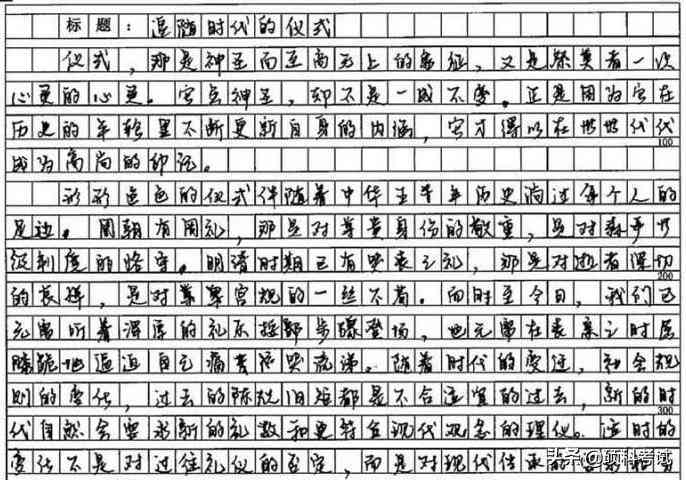 标题：追随时代的仪式
仪式，那是神圣而至高无上的象征，又是祭奠着一次
心灵的心灵。它虽神圣，却不是一成不变。正是因为它在
历史的年轮里不断更新自身的内涵，它才得以在世世代代
100
成为高尚的印记。
形形色色的仪式伴随着中华五千年历史淌过每个人的
足边。周朝有周礼，那是对尊贵身份的敬重，是对森严
制度的恪守。明清时期已有哭丧之礼，那是对逝者深切
200
的哀悼，是对家规的一丝不苟。而时至今日，我们已
无需听着浑厚的礼乐按部步骤登场，也无需在丧亲之时屈
膝跪地逼迫自己痛苦流涕。随着时代的变迁，社会规
则的变化，过去的陈规旧俗都是不合适宜的过去，新的时
300
代自然会要求新的礼数和更符合现代观念的理仪。这时的
变化不是对过往礼仪的否定，而是对现代传承的
头条@硕科考试